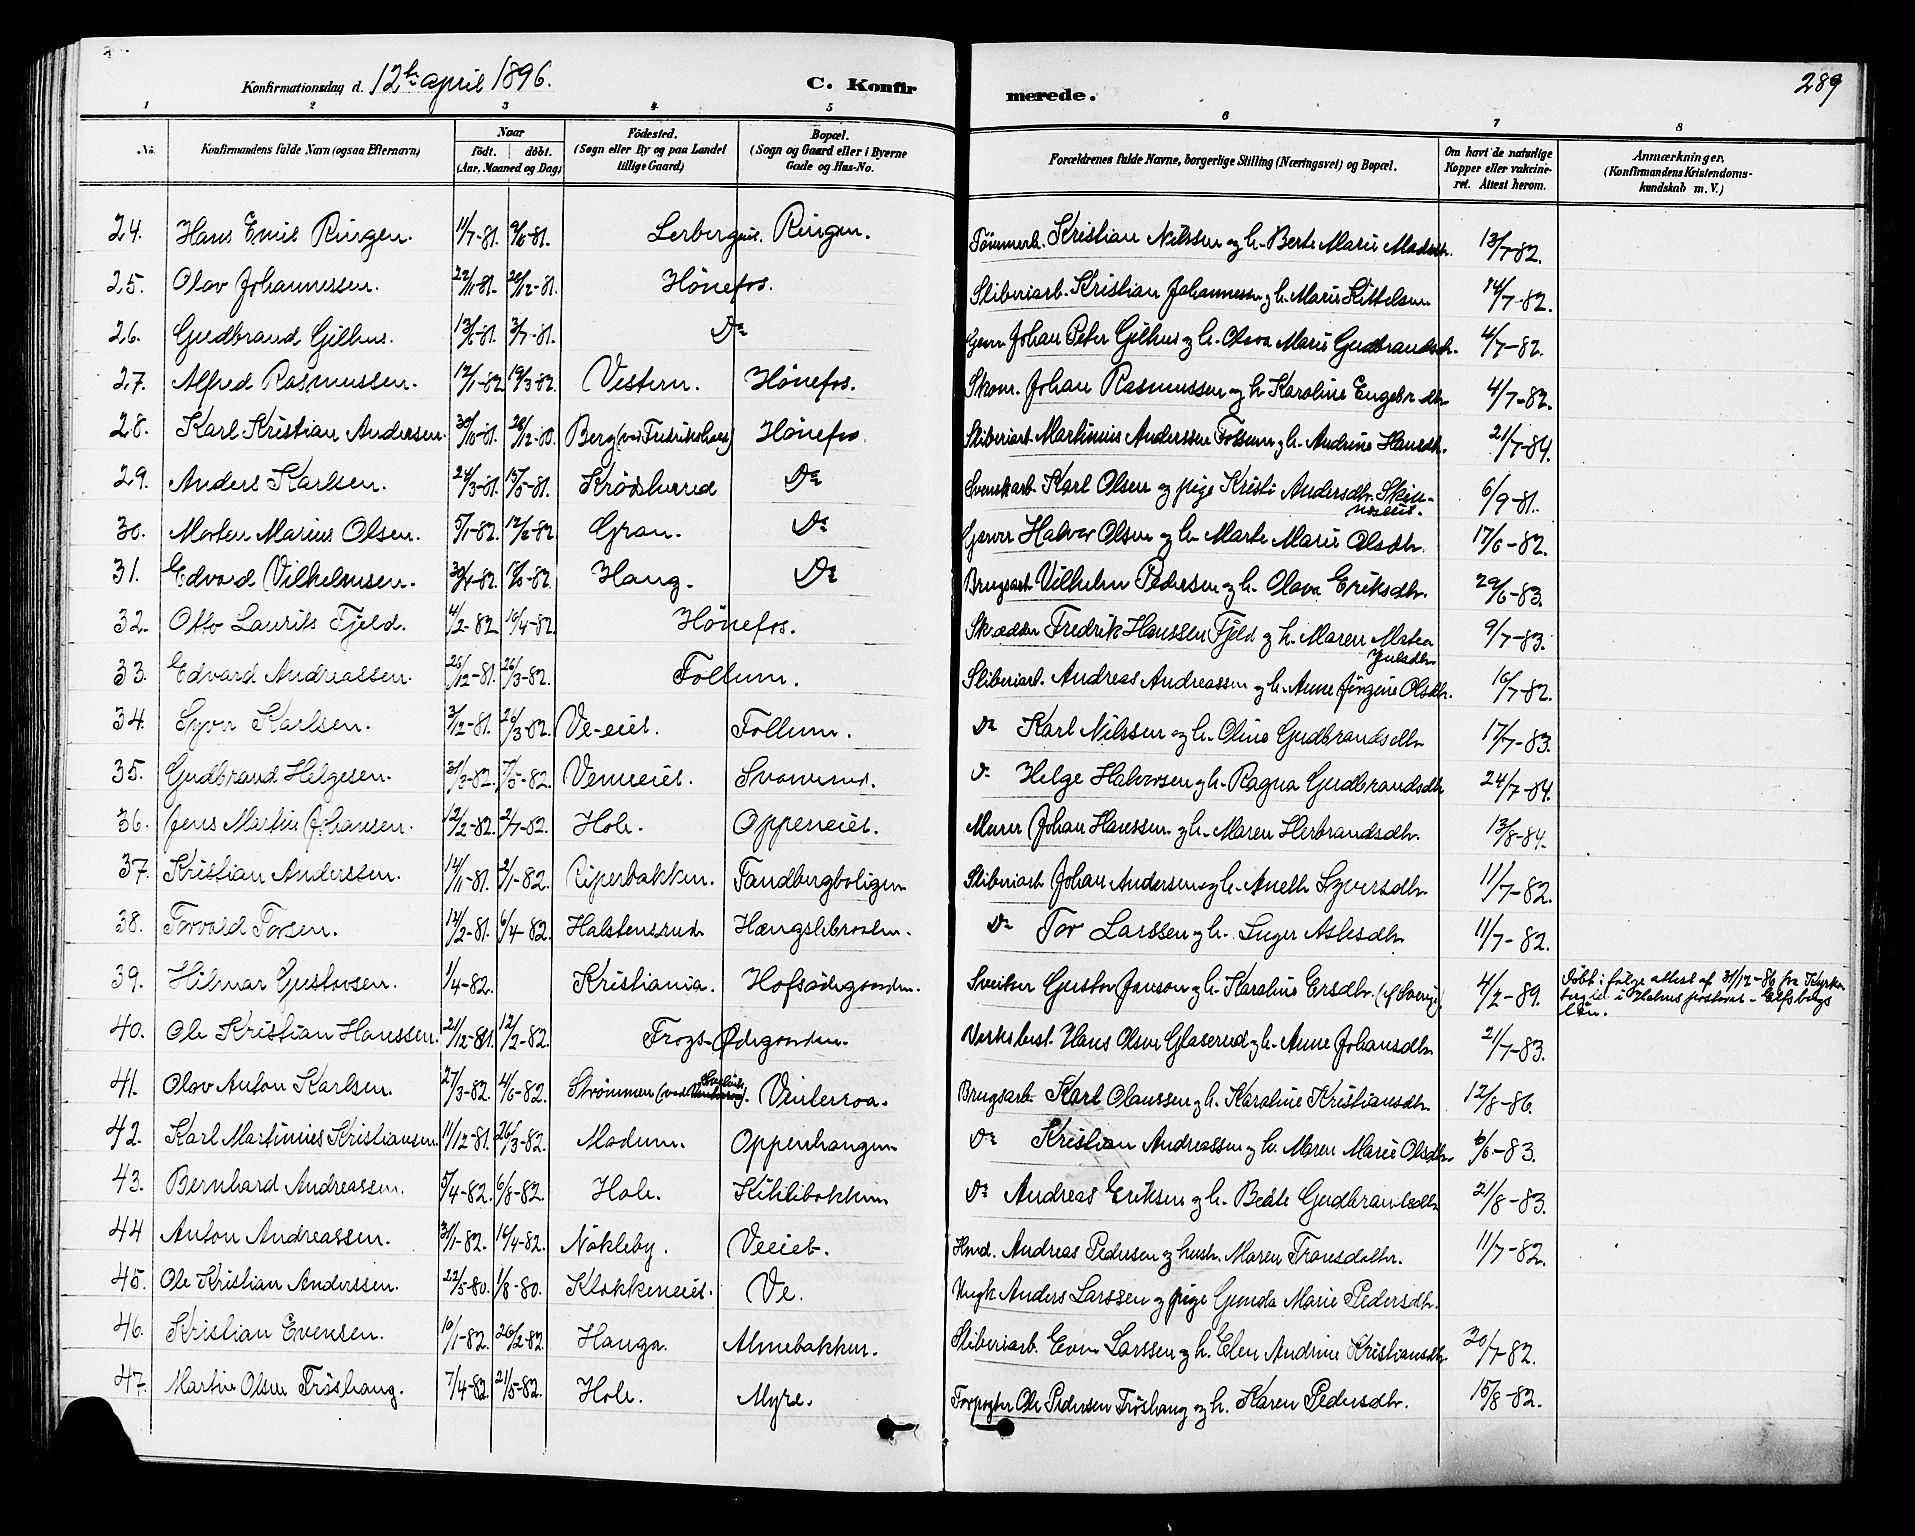 Konfirmationsdag d. 12te april 1896. C. Konfirmerede. 289
1 2 3 4 5 6 7 8
No. Konfirmandens fulde Navn (ogsaa Efternavn) Naar født. døbt. (Aar, Maaned og Dag) Fødested. (Sogn eller By og paa Landet tillige Gaard) Bopæl. (Sogn og Gaard eller i Byerne Gade og Hus-No. Forældrenes fulde Navne, borgerlige Stilling (Næringsvei) og Bopæl. Om havt de naturlige Kopper eller vakcineret. Attest herom. Anmærkninger. (Konfirmandens Kristendomskundskab m. V.)
24. Hans Emil Ringen. 11/7-81. 9/8-81. Lerberg Ringen. Tømmerh. Kristian Nilssen og h. Berte Marie Madsdtr. 13/7-82.
25. Olav Johannessen. 22/11-81. 26/12-81. Hönefos. Sliberiarb. Kristian Johannessen og h. Marie Kittelsen 14/7-82.
26. Gudbrand Gilhus. 13/6-81. 3/7-81. Do Johan Peter Gilhus og h. Olava Marie Gudbrandsdtr. 4/7-82.
27. Alfred Rasmussen. 12/1-82. 19/3-82. Vestern. Hönefos. Skom. Johan Rasmussen og h. Karoline Engebr.dtr 4/7-82.
28. Karl Kristian Anderssen. 30/10-81. 26/12-80. Berg (ved Fredrikshald) Hönefos. Sliberiarb. Martinius Anderssen Follum og h. Andrine Hansdtr. 21/7-84.
29. Anders Karlsen. 24/3-81. 15/5-81. Krödsherred Do Karl Olsen og pige Kristi Andersdtr. 6/9-81.
30. Morten Marius Olsen. 5/1-82. 12/2-82. Gran. Do Garver Halvor Olsen og h. Marte Marie Olsdtr. 17/6-82.
31. Edvard Vilhelmsen. 30/4-82. Haug. Do Brugsarb. Vilhelm Pedersen og h. Olava Eriksdtr. 29/6-83.
32. Otto Laurits Fjeld. 4/2-82. 10/4-82. Hönefos. Skrædder Fredrik Hanssen Fjeld og h. Maren Matea Julsdtr 9/7-83.
33. Edvard Andreassen. 26/12-81. 26/3-82. Follum. Sliberiarb. Andreas Andreassen og h. Anne Jörgine Olsdtr. 10/7-82.
34. Syver Karlsen. 3/12-81. 26/3-82. Ve-eiet. Follum. Do Karl Nilssen og h. Oline Gudbrandsdtr 17/7-83.
35. Gudbrand Helgesen. 31/3-82. 7/5-82. Veneiet. Svarverud. Do Helge Halvorsen og h. Ragna Gudbrandsdtr 24/7-84.
36. Jens Martin Johansen. 12/2-82. 2/7-82. Hole. Oppeneiet. Murer Johan Hanssen og h. Maren Herbrandsdtr. 13/8-84.
37. Kristian Anderssen. 14/11-81. 2/1-82. Riperbakken. Tandbergboligen Sliberiarb Johan Andersen og h. Anette Syversdtr 11/7-82.
38. Torvald Torsen. 14/2-81. 6/4-82. Halstensrud. Do Tor Larssen og h. Inger Aslesdtr 11/7-82.
39. Hilmar Gustavsen. 1/4-82. Kristiania. Hofsödegaarden. Gustav Janson og h. Karoline Ersdtr. (i Sverige) 4/2-89. Döbt i fölge attest af 31/12-86 fra i pastorat - Elfsborgs län.
40. Ole Kristian Hanssen. 21/12-81. 12/2-82. Frogs-Ödegaarden. Verksbest. Hans Olsen Glaserud og h. Anne Johansdtr 21/7-83.
41. Olav Anton Karlsen. 27/3-82. 4/6-82. Strömmen Vinterroa. Brugsarb. Karl Olaussen og h. Karoline Kristiansdtr. 12/8-86.
42. Karl Martinius Kristiansen. 11/12-81. 26/3-82. Modum. Oppenhaugen Do Kristian Andreassen og h. Maren Marie Olsdtr 6/6-83.
43. Bernhard Andreassen. 5/4-82. 6/8-82. Hole. Do Andreas Eriksen og h. Beate Gudbrandsdtr 21/8-83.
44 Anton Andreassen. 31/1-82. 16/4-82. Nökleby. Veeiet. Hmd. Andreas Pedersen og hustr. Maren 11/7-82.
45. Ole Kristian Anderssen. 22/5-80. 1/8-80. Klokkereiet. Ve. Ungk Anders Larssen og pige Gunda Marie Pedersdtr.
46. Kristian Evensen. 10/1-82. 26/2-82. Hauga. Almebakken. Sliberiarb. Even Larssen og h. Elen Andrine Kristiansdtr 20/7-82.
47. Martin Olsen Fröshaug. 7/4-82. 21/5-82. Hole. Myra. Forpagter Ole Pedersen Fröshaug og h. Karen Pedersdtr. 15/8-82.